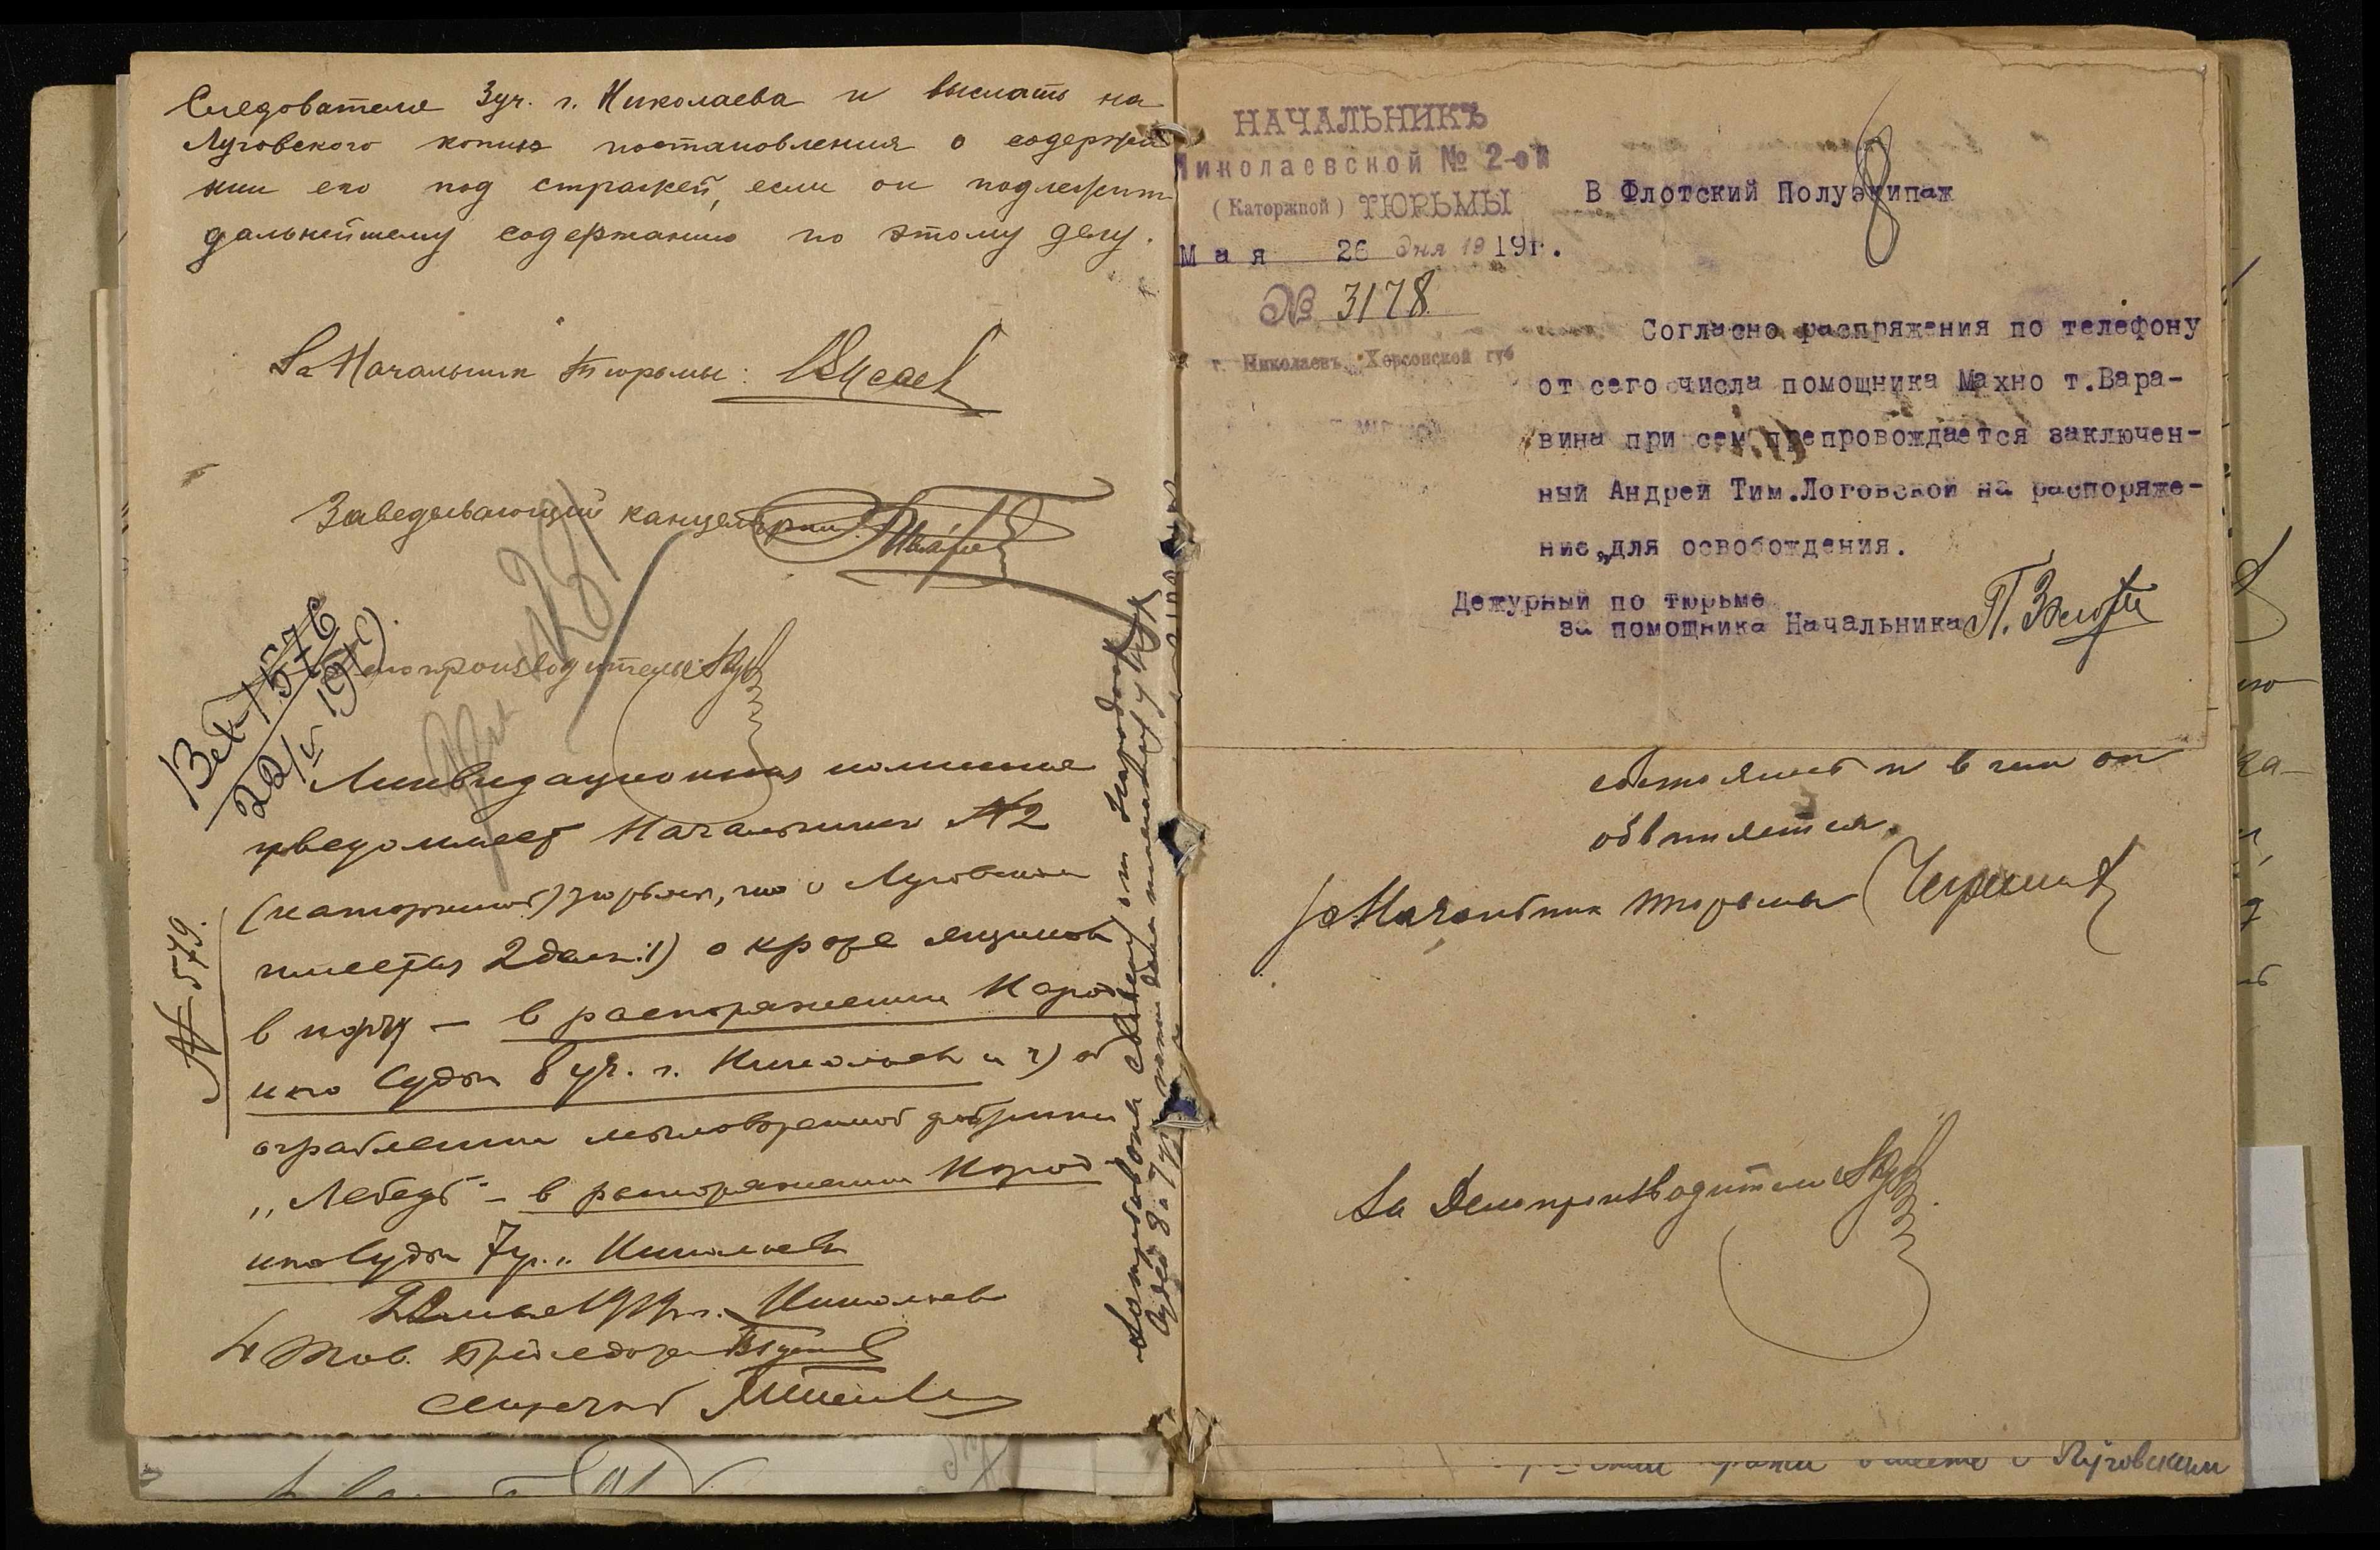 Следователя 3 уч. г. Николаева и выслать на
Луговского копию постановления о содержа
нии его под стражей, если он подлежит
дальнейшему содержанию по этому делу.
За Начальник тюрьмы:
Заведывающий канцелярии
Делопроизводитель
Вх-1576
22/V 1919
№ 579.
Ликвидационная комиссия
уведомляет Начальника № 2
(каторжной) тюрьмы, что о Луговском
имеется 2 дела: 1) о краже ящиков
в порту — в распоряжении Народ
ного Судьи 8 уч. г. Николаева и 2) об
ограблении мыловаренной фабрики
„Лебедь" — в распоряжении Народ-
ного Судьи 7 у. г. Николаева
мая 1919 г. Николаев
Тов. Председателя
Секретарь
от народных
Судей 8 и 7 уч.
НАЧАЛЬНИКЪ
Николаевской № 2-ой
(Каторжной) ТЮРЬМЫ
Мая 26 дня 1919г.
№ 3178
г. Николаевъ, Херсонской губ
8
В Флотский Полуэкипаж
Согласно распряжения по телефону
от сего числа помощника Махно т.Вара-
вина при сем препровождается заключен-
ный Андрей Тим.Логовской на распоряже-
ние„для освобождения.
Дежурный по тюрьме
за помощника Начальника
состоит и в чем он
обвиняется.
За Начальник тюрьмы
За Делопроизводителя
вместе с Луговским